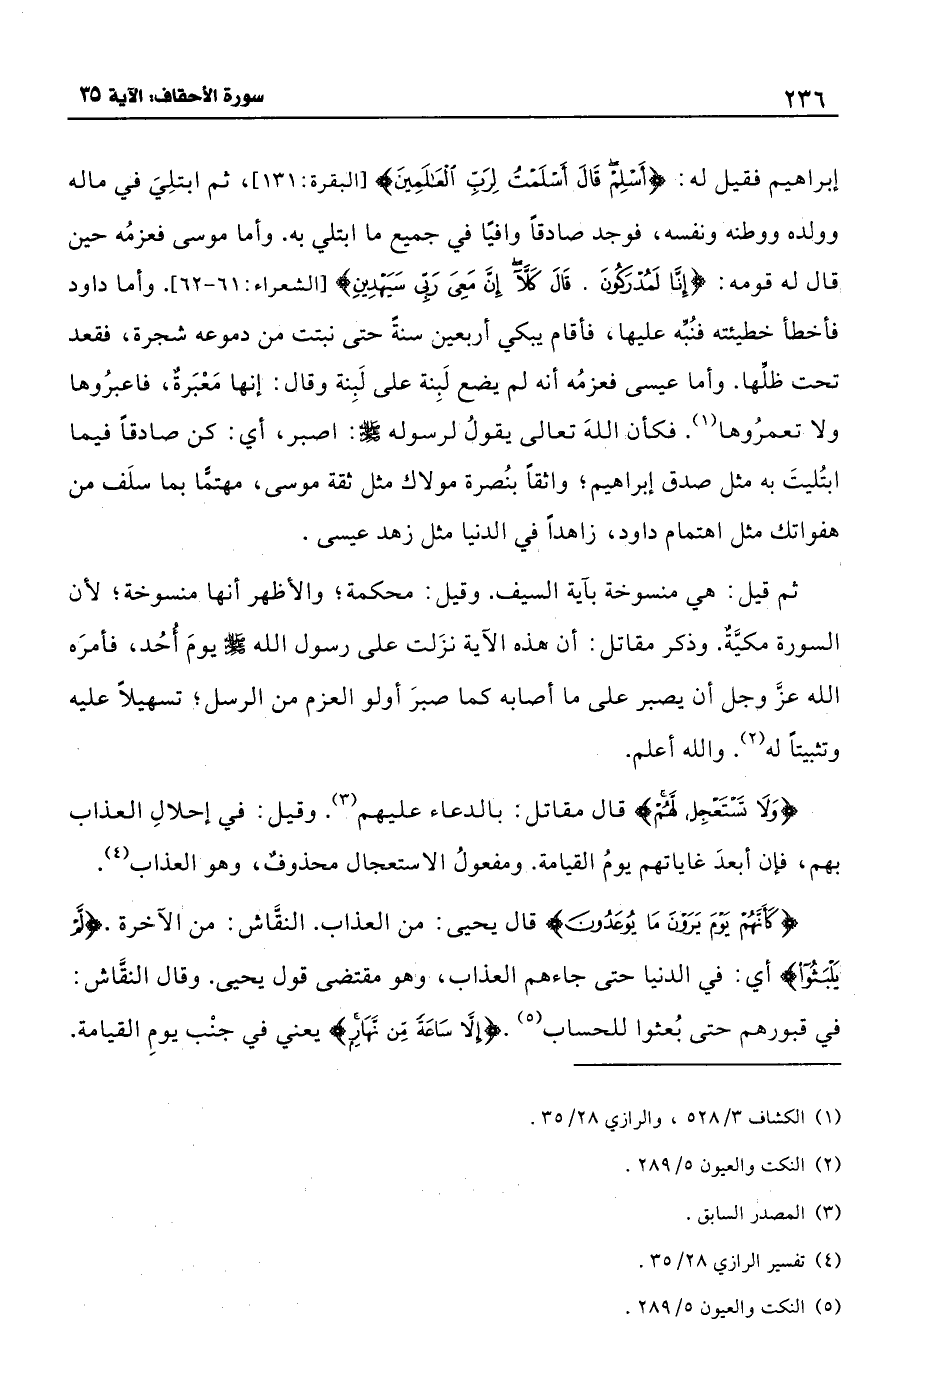 ٢٣٦ سورة الأحقاف: الآية ٣٥
إبراهيم فقيل له: ﴿أَسْلِمْ قَالَ أَسْلَمْتُ لِرَبِّ الْعَالَمِينَ﴾ [البقرة:١٣١]، ثم ابتلِيَ في ماله
وولده ووطنه ونفسه، فوجد صادقاً وافيًا في جميع ما ابتلي به. وأما موسى فعزمُه حين
قال له قومه: ﴿إِنَّا لَمُدْرَكُونَ . قَالَ كَلَّا إِنَّ مَعِىَ رَبِّى سَيَهْدِينِ﴾ [الشعراء:٦١-٦٢]. وأما داود
فأخطأ خطيئته فنُبِّه عليها، فأقام يبكي أربعين سنةً حتى نبتت من دموعه شجرة، فقعد
تحت ظلِّها. وأما عيسى فعزمُه أنه لم يضع لَبِنة على لَبِنة وقال: إنها مَعْبَرةٌ، فاعبرُوها
ولا تعمرُوها(١). فكأن اللهَ تعالى يقولُ لرسوله ﷺ: اصبر، أي: كن صادقاً فيما
ابتُليتَ به مثل صدق إبراهيم؛ واثقاً بنُصرة مولاك مثل ثقة موسى، مهتمًّا بما سلَف من
هفواتك مثل اهتمام داود، زاهداً في الدنيا مثل زهد عيسى .
ثم قيل: هي منسوخة بآية السيف. وقيل: محكمة؛ والأظهر أنها منسوخة؛ لأن
السورة مكيَّةٌ. وذكر مقاتل: أن هذه الآية نزَلت على رسول الله ﷺ يومَ أُحُد، فأمرَه
الله عزَّ وجل أن يصبر على ما أصابه كما صبرَ أولو العزم من الرسل؛ تسهيلاً عليه
وتثبيتاً له(٢). والله أعلم.
﴿وَلَا تَسْتَعْجِل لَّهُمْ﴾ قال مقاتل: بالدعاء عليهم(٣). وقيل: في إحلالِ العذاب
بهم، فإن أبعدَ غاياتهم يومُ القيامة. ومفعولُ الاستعجال محذوفٌ، وهو العذاب(٤).
﴿كَأَنَّهُمْ يَوْمَ يَرَوْنَ مَا يُوعَدُونَ﴾ قال يحيى: من العذاب. النقَّاش: من الآخرة .﴿لَمْ
يَلْبَثُوٓا﴾ أي: في الدنيا حتى جاءهم العذاب، وهو مقتضى قول يحيى. وقال النقَّاش:
في قبورهم حتى بُعثوا للحساب(٥) .﴿إِلَّا سَاعَةً مِّن نَّهَارٍ﴾ يعني في جنْب يومِ القيامة.
(١) الكشاف ٣/ ٥٢٨ ، والرازي ٢٨/ ٣٥ .
(٢) النكت والعيون ٥/ ٢٨٩ .
(٣) المصدر السابق .
(٤) تفسير الرازي ٢٨/ ٣٥ .
(٥) النكت والعيون ٥/ ٢٨٩ .